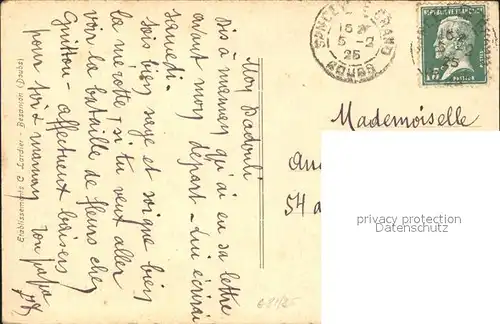 Mon Padouli
dis à maman qu'ai eu sa lettre
avant mon départ - lui écrirai
samedi.
sois bien sage et soigne bien
la mérotte & si tu veux aller
voir la bataille de fleurs chez
Guitton - affectueux baisers
pour toi & maman ton papa
Etablissements C. Lardier - Besançon (Doubs)
15
5-2
25
DOUBS
REPUBLIQUE FRANÇAISE
POSTES
PASTEUR
Mademoiselle
54
privacy protection
www.ansichtskartenversand.com